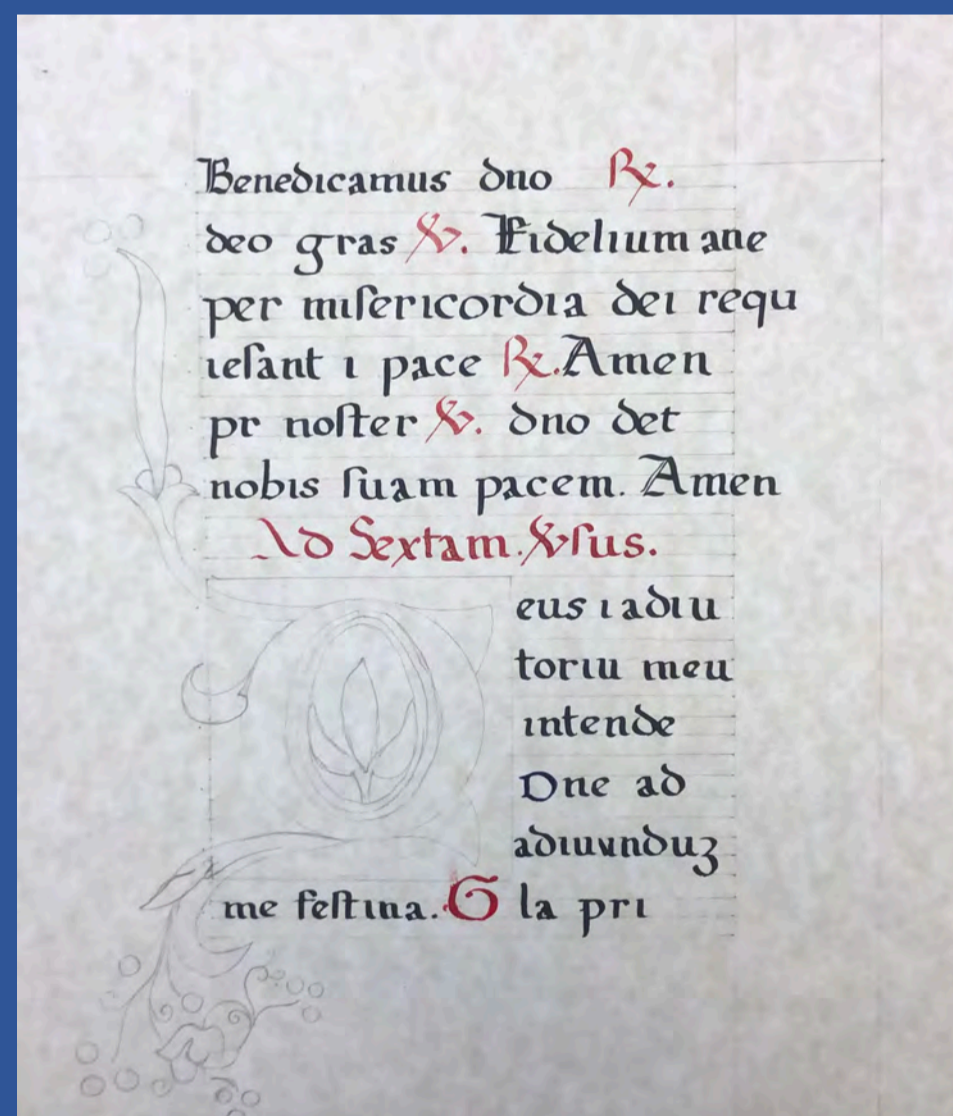 Benedicamus dno ℟.
deo gras ℣. Fidelium ane
per miſericordia dei requ
ieſant i pace ℟. Amen
pr noſter ℣. dno det
nobis ſuam pacem. Amen
Ad Sextam. ℣ſus.
eus i adiu
toriu meu
intende
Dne ad
adiuvnduʒ
me feſtina. G la pri